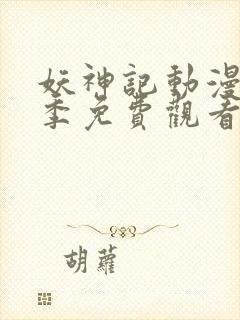 妖神記動漫
季免費觀看
胡蘿